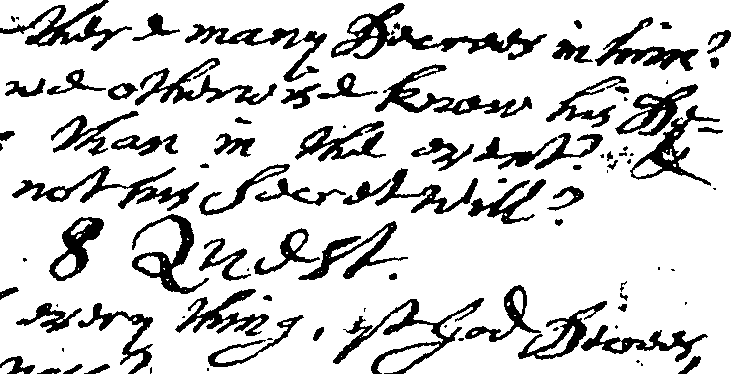 there many Decrees in him?
we otherwise know his De=
than in the event? &
not his Secret Will?
8 Quest.
every thing, yt God Decrees,